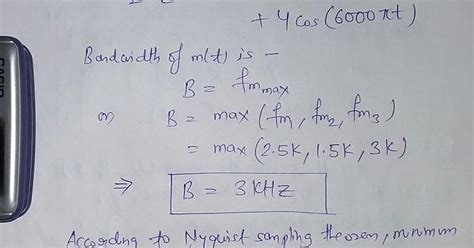 + 4 cos (6000πt)
Bandwidth of m(t) is –
B = fm max
or B = max (fm, fm2, fm3)
= max (2.5K, 1.5K, 3K)
⇒ B = 3 KHZ
According to Nyquist sampling theorem, minimum